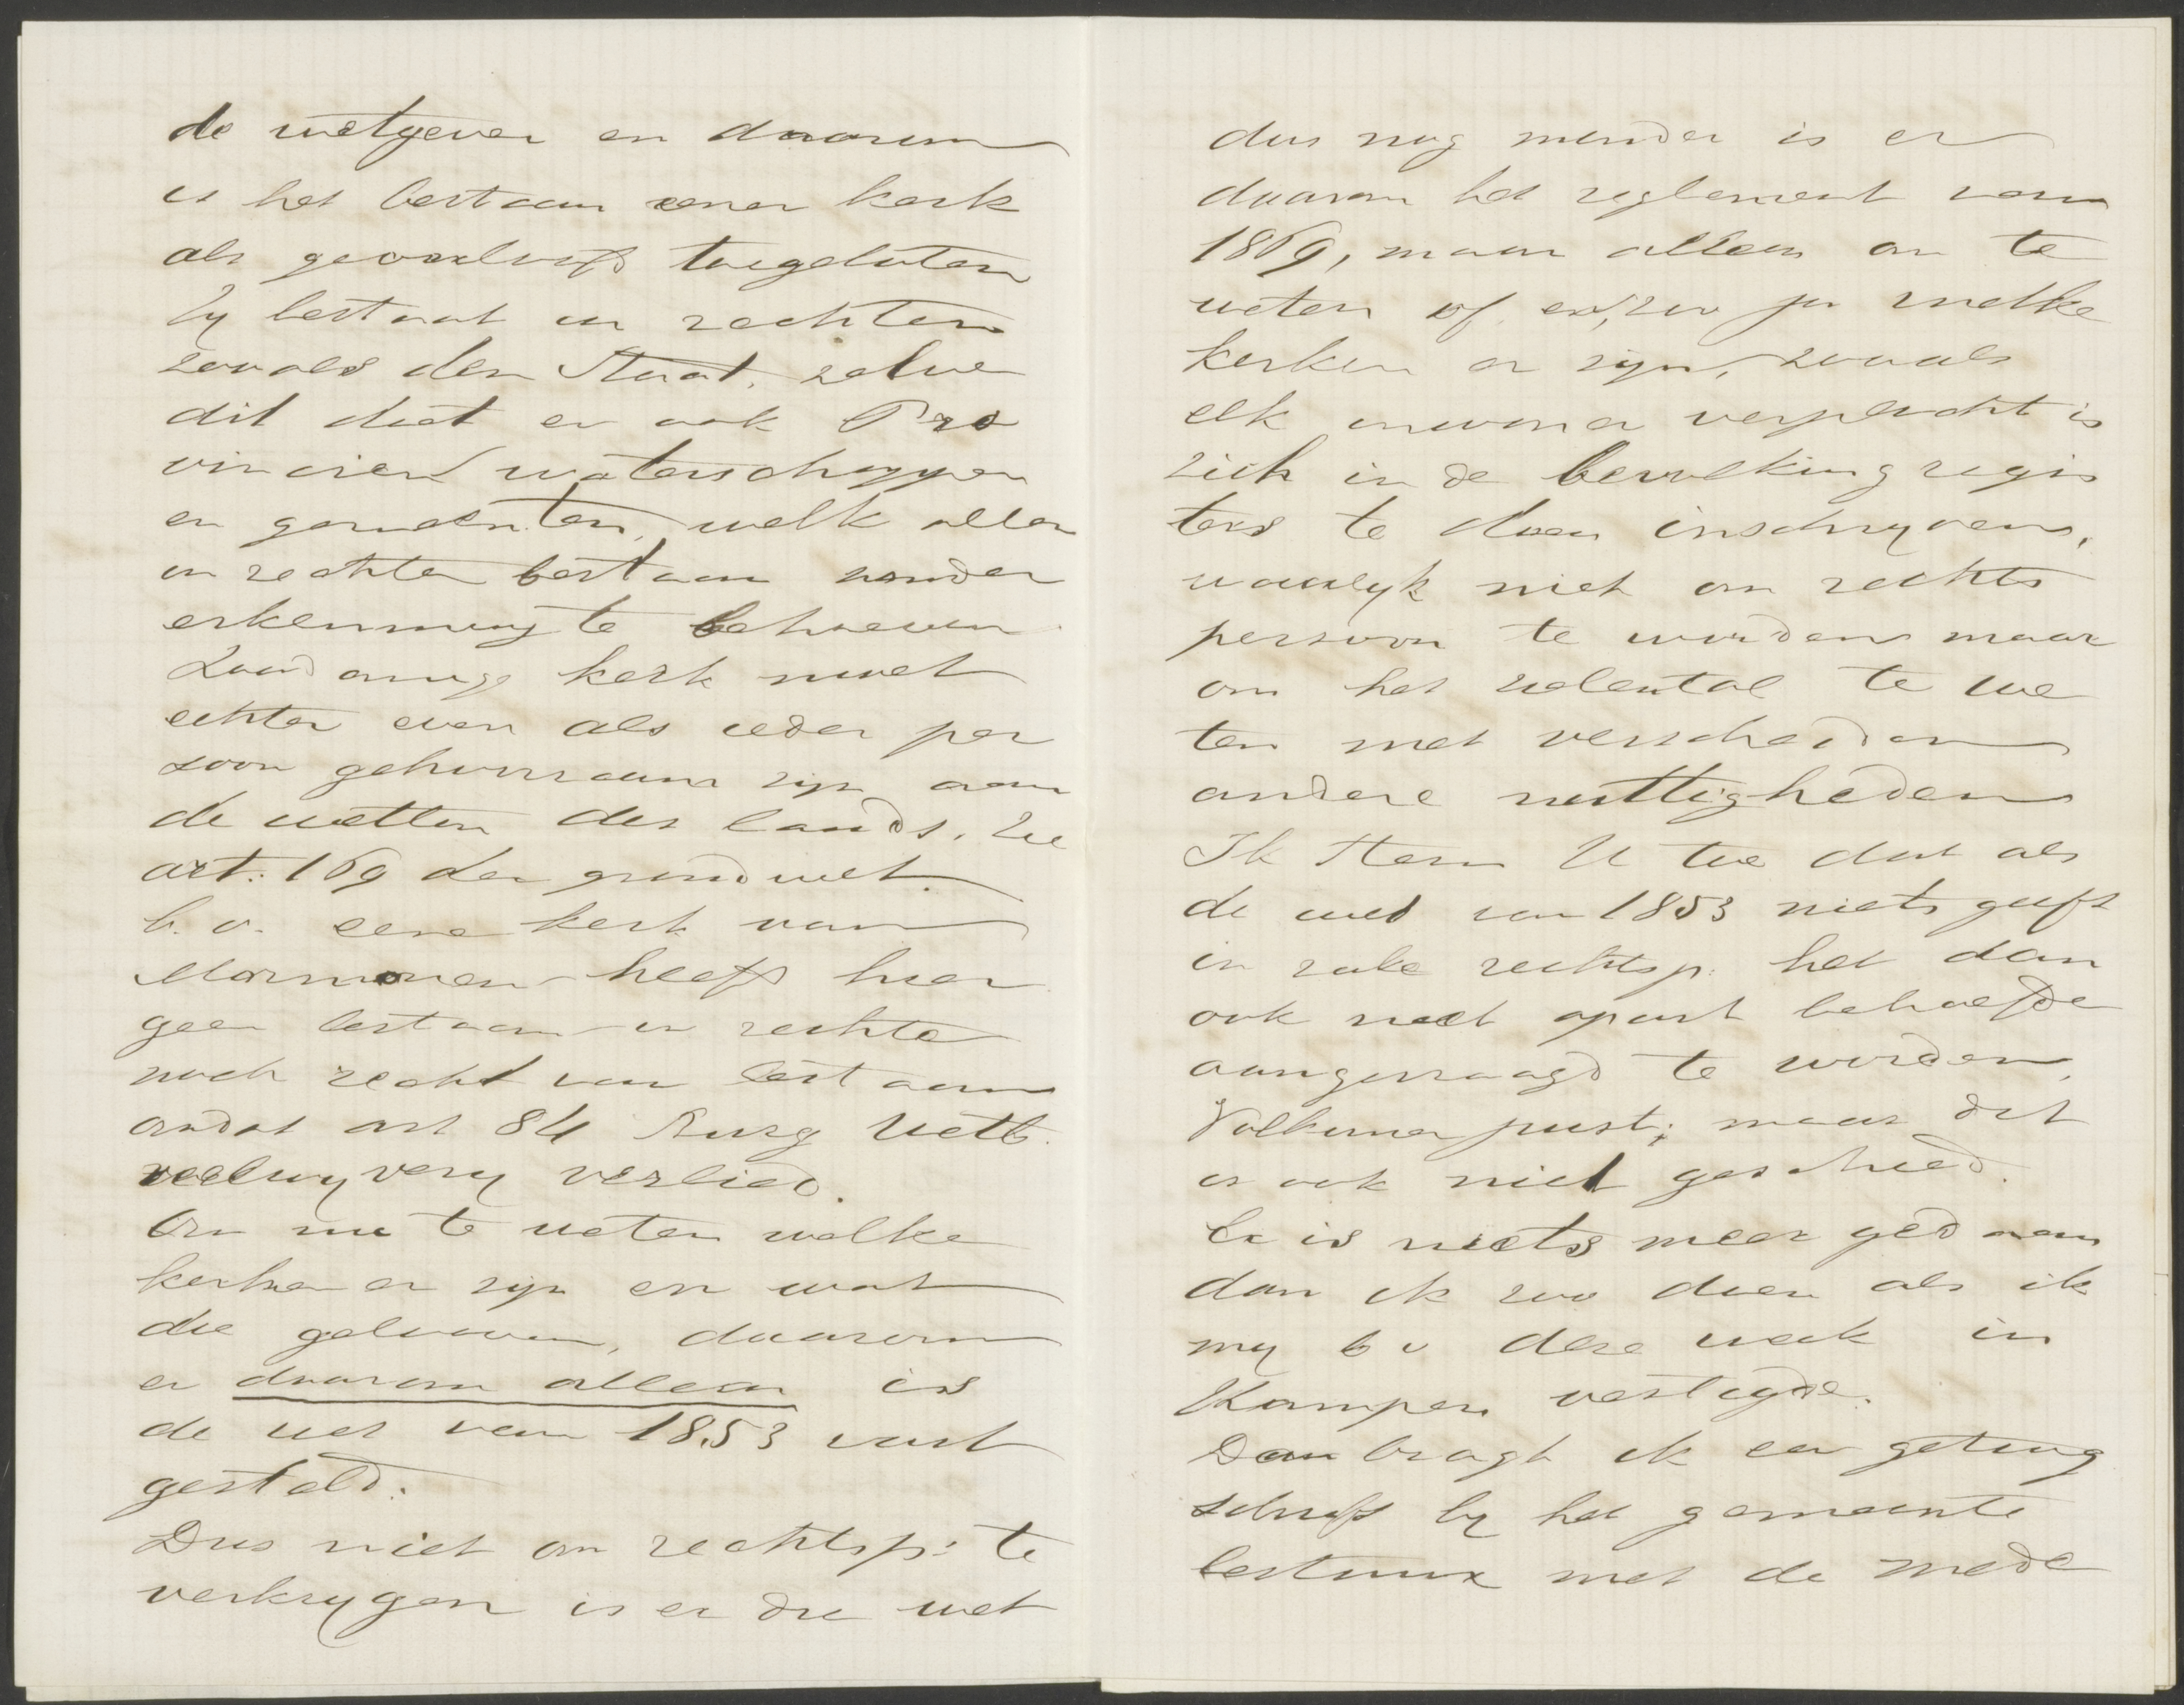 de wetgever en daarom
is het bestaan eener kerk
als geoorloofd toegelaten
Zy bestaat in rechten
zooals den Staat zelve
dit doet en ook Pro
vincien waterschappen
en gemeenten, welk allen
in rechten bestaan zonder
erkenning te behoeven
Zoodanige kerk moet
echter even als ieder per
soon gehoorzaam zijn aan
de wetten des lands. Zie
art: 169 der grondwet.
b.v. eene kerk van
Mormonen heeft hier
geen bestaan in rechte
noch recht van bestaan
omdat art 84 Burg Wetb.
veelwyvery verbied.
Om nu te weten welke
kerken er zijn en wat
die gelooven, daarom
en daarom alleen is
de wet van 1853 vast
gesteld.
Dus niet om rechtsp: te
verkrygen is er die wet
dus nog minder is er
daarom het reglement van
1869, maar alleen om te
weten of en, zoo ja welke
kerken er zijn, zooals
elk inwoner verplicht is
zich in de bevolking regis
ters te doen inschryven,
waarlyk niet om rechts
persoon te worden maar
om het zielental te we
ten met verscheiden
andere nuttigheden
Ik stem U toe dat als
de wet van 1853 niets geeft
in zake rechtsp: het dan
ook niet apart behoefde
aangevraagd te worden.
Volkomen juist; maar dit
is ook niet geschied.
Er is niets meer gedaan
dan ik zou doen als ik
my b v deze week in
Kampen vestigde.
Dan bragt ik een getuig
schrift by het gemeente
bestuur met de mede